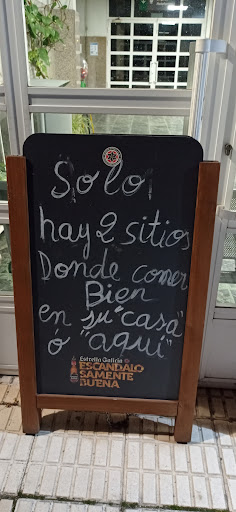 Solo
hay 2 sitios
Donde comer
Bien
en su "casa"
ó "aquí"
Estrella Galicia
ESCANDALO
SAMENTE
BUENA